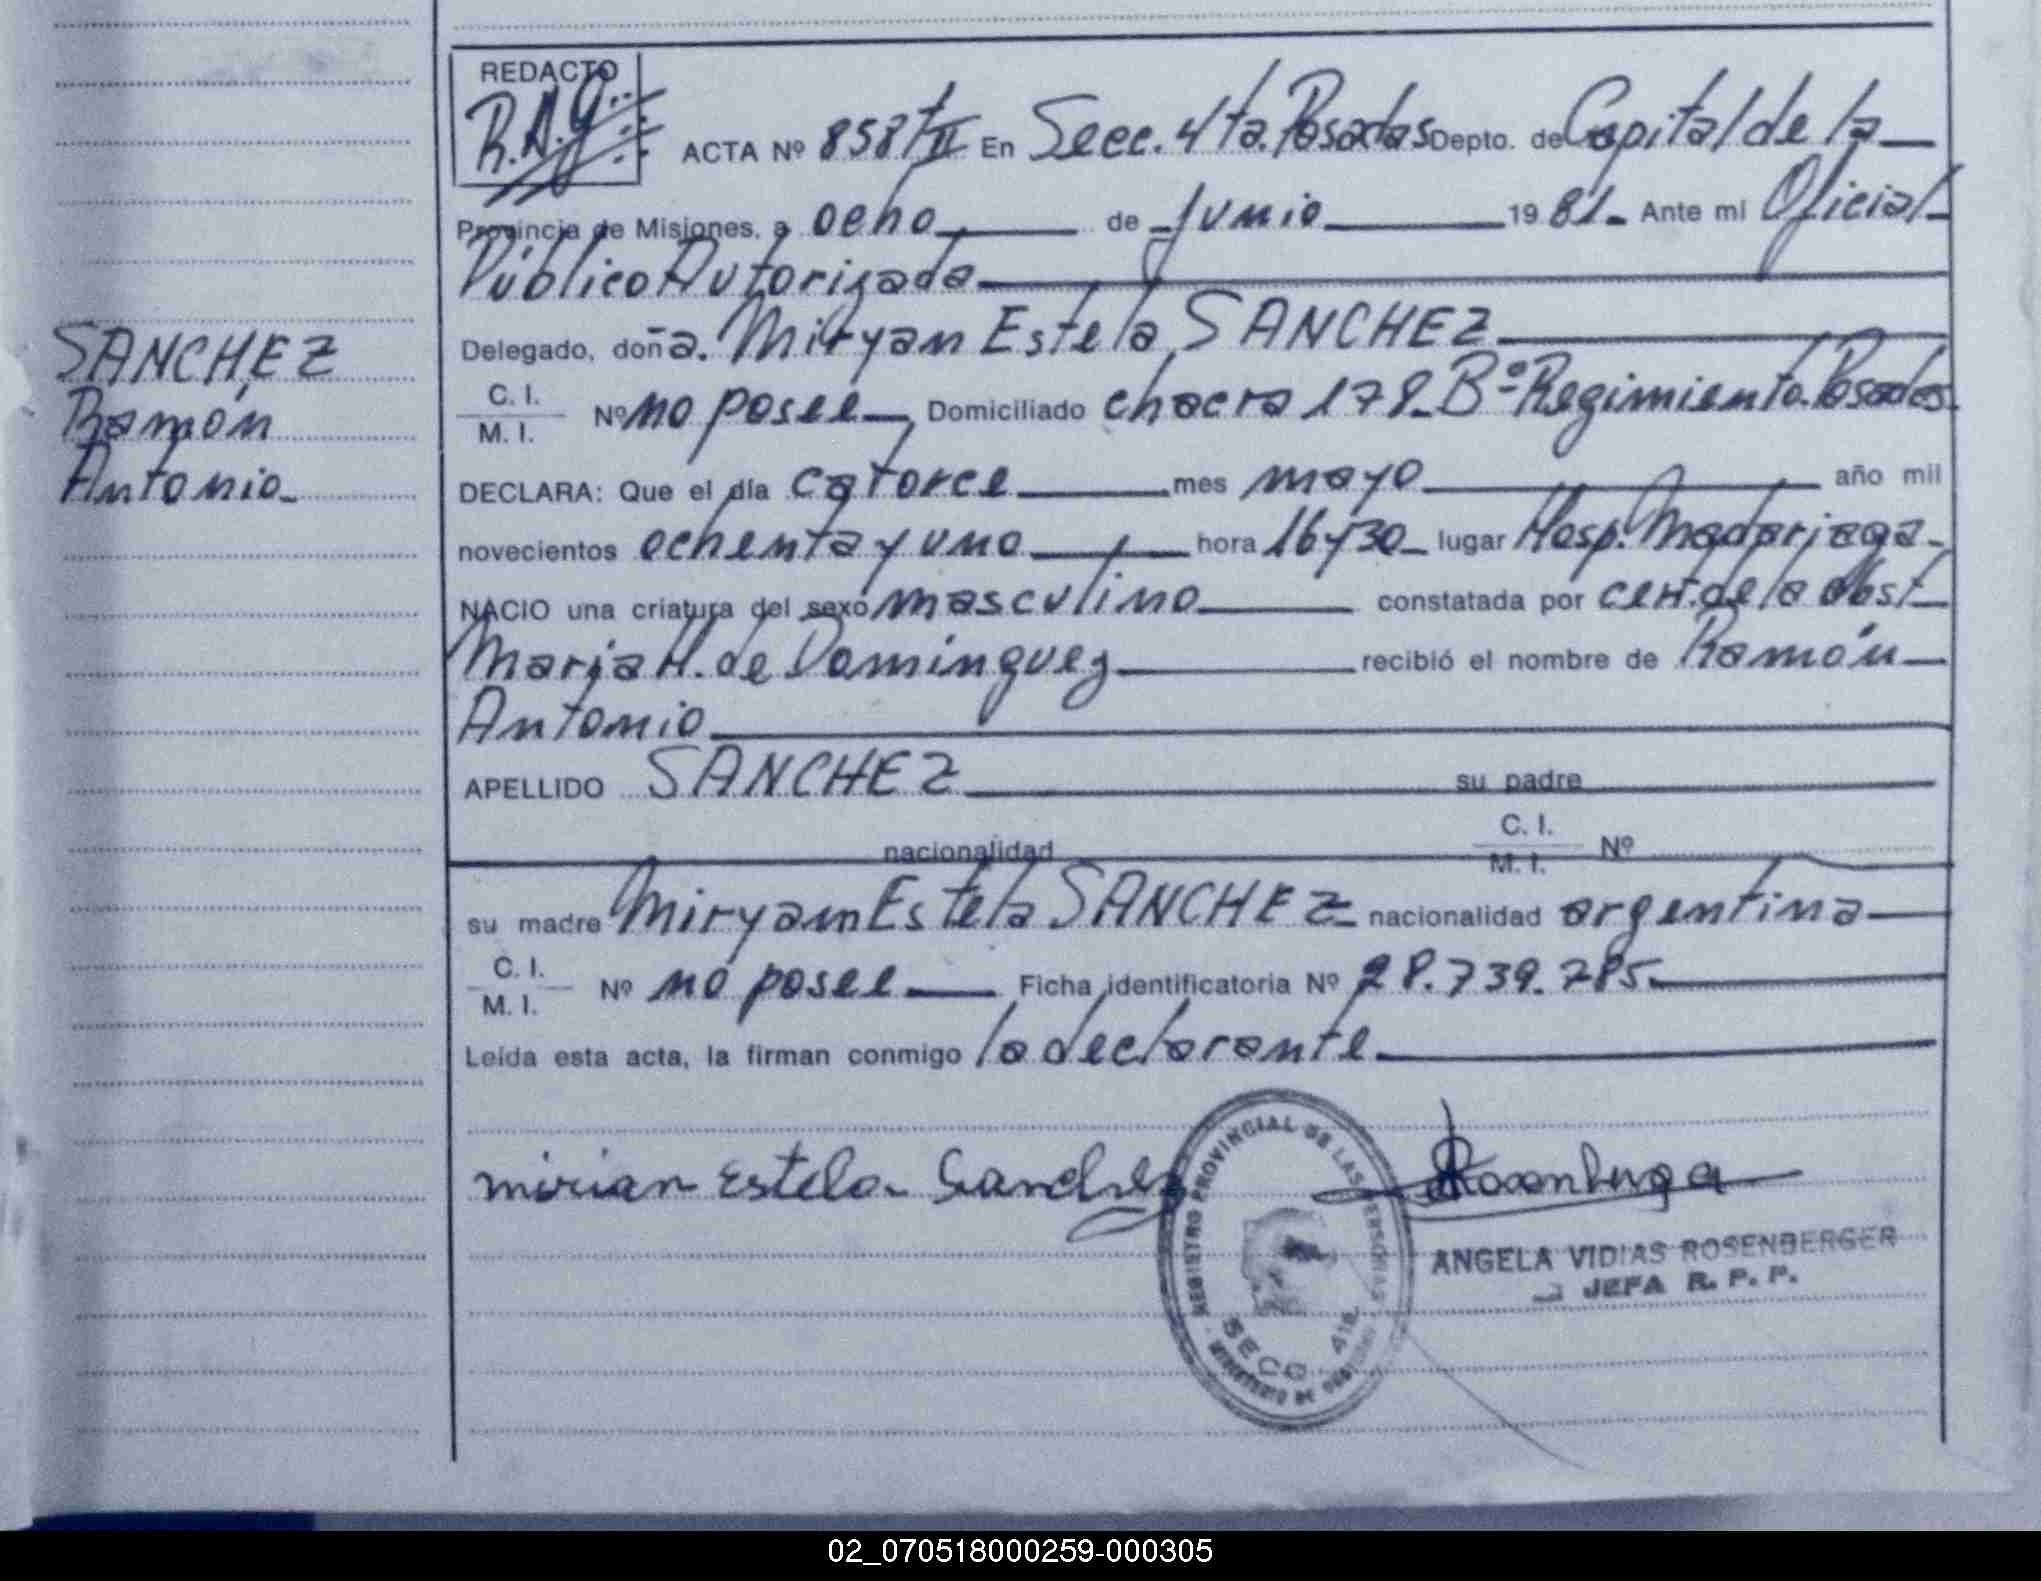 REDACTO
R.A.G.
ACTA Nº 858 T II En Secc. 4ta. Posadas Depto. de Capital de la
Provincia de Misiones, a ocho de Junio 1981. Ante mi Oficial
Público Autorizada
SANCHEZ
Ramón
Antonio
Delegado, doña. Miryan Estela SANCHEZ
C. I.
M. I.
Nº no posee, Domiciliado chacra 178. Bº Regimiento. Posadas.
DECLARA: Que el día catorce mes mayo año mil
novecientos ochenta y uno hora 16y30 lugar Hosp. Madariaga
NACIO una criatura del sexo masculino constatada por cert. de la Obst
Maria H. de Dominguez recibió el nombre de Ramón
Antonio
APELLIDO SANCHEZ su padre
nacionalidad C. I.
M. I. Nº
su madre Miryam Estela SANCHEZ nacionalidad argentina
C. I.
M. I.
Nº no posee Ficha identificatoria Nº 28.739.785.
Leída esta acta, la firman conmigo la declarante.
mirian Estela Sanchez
REGISTRO PROVINCIAL DE LAS PERSONAS
SECC. 4ta.
MINISTERIO DE GOBIERNO
ANGELA VIDIAS ROSENBERGER
JEFA R. P. P.
02_070518000259-000305